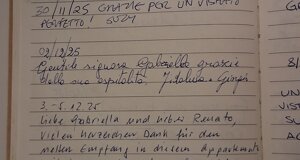 30/11/25 GRAZIE PER UN
PERFETTO! SUZY
02/12/25
Gentile signora Gabriella grazie
della sua ospitalità,
3.-5.12.25
Liebe Gabriella und lieber Renato,
vielen herzlichen Dank für den
netten Empfang in diesem Appartement
8/
UN
V
SU
A